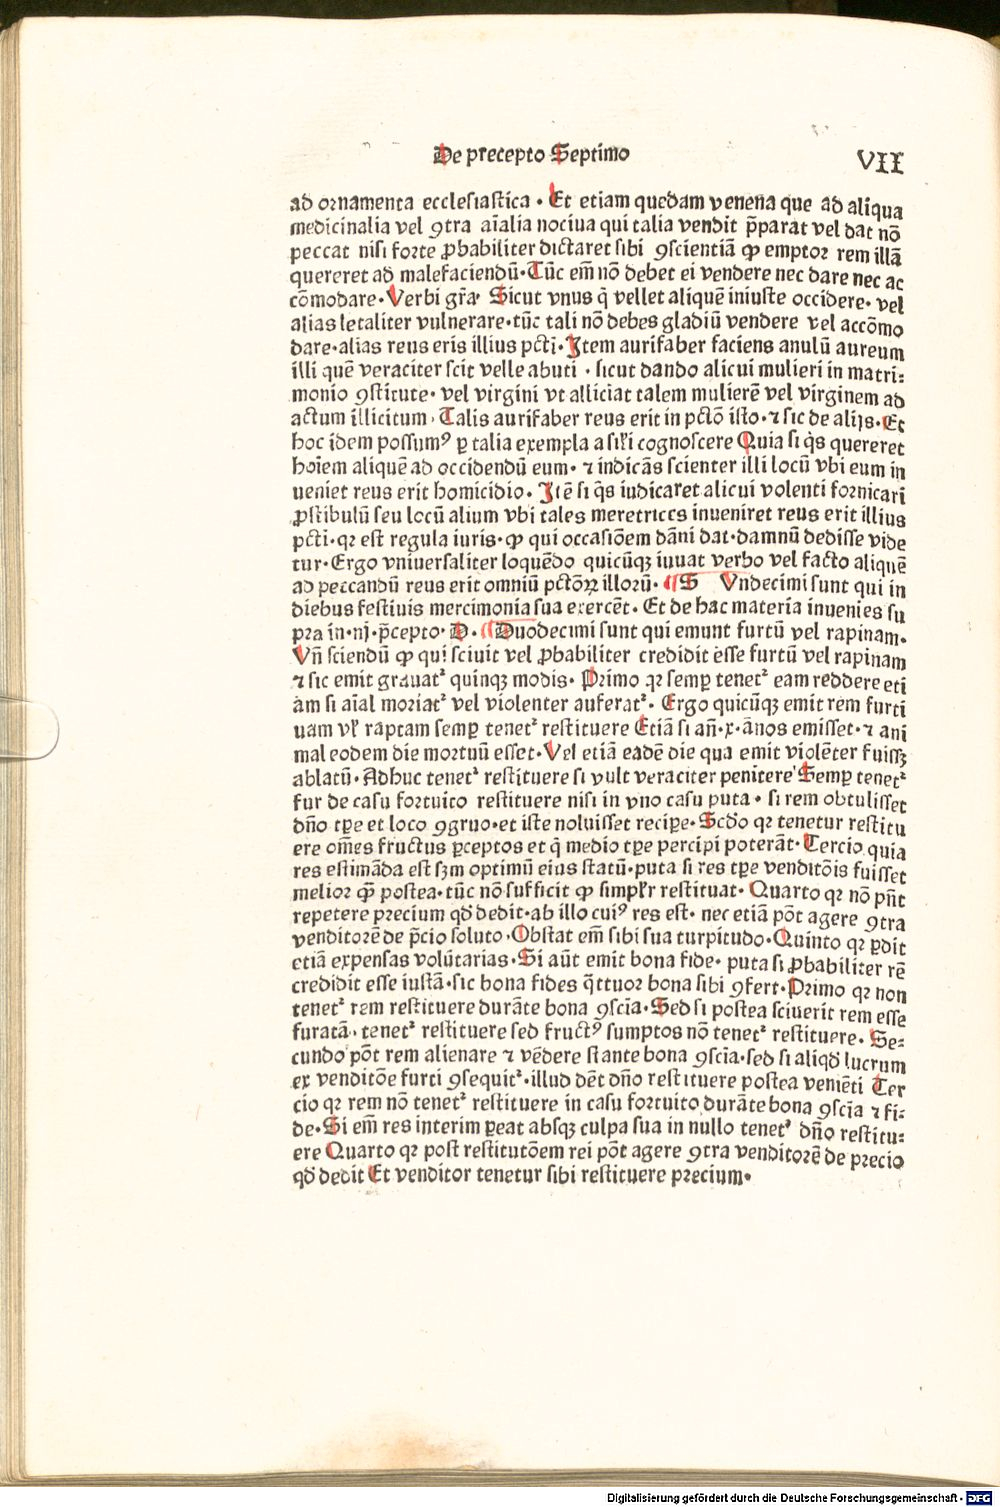 De precepto Septimo
VII
ad ornamenta ecclesiastica . Et etiam quedam venena que ad aliqua
medicinalia vel ꝯtra aīalia nociua qui talia vendit p̄parat vel dat nō
peccat nisi forte ꝓbabiliter dictaret sibi ꝯscientiā ꝙ emptor rem illā
quereret ad malefaciendū. Tūc em̄ nō debet ei vendere nec dare nec ac
cōmodare. Verbi grā. Sicut vnus q̄ vellet aliquē iniuste occidere. vel
alias letaliter vulnerare. tūc tali nō debes gladiū vendere vel accōmo
dare. alias reus eris illius pcti. Jtem aurifaber faciens anulū aureum
illi quē veraciter scit velle abuti . sicut dando alicui mulieri in matri⸗
monio ꝯstitute. vel virgini vt alliciat talem mulierē vel virginem ad
actum illicitum. Talis aurifaber reus erit in pctō isto. ⁊ sic de alijs. Et
hoc idem possumꝰ ꝑ talia exempla a sił̄i cognoscere Quia si q̄s quereret
hoīem aliquē ad occidendū eum. ⁊ indicās scienter illi locū vbi eum in
ueniet reus erit homicidio. Jtē si q̄s iudicaret alicui volenti fornicari
ꝓstibulū seu locū alium vbi tales meretrices inueniret reus erit illius
pcti. qꝛ est regula iuris. ꝙ qui occasiōem dāni dat. damnū dedisse vide
tur. Ergo vniuersaliter loquēdo quicūqꝫ iuuat verbo vel facto aliquē
ad peccandū reus erit omniū pctōꝝ illorū. ¶ S Vndecimi sunt qui in
diebus festiuis mercimonia sua exercēt. Et de hac materia inuenies su
pra in. iij. p̄cepto. D. ¶ Duodecimi sunt qui emunt furtū vel rapinam.
Vn̄ sciendū ꝙ qui sciuit vel ꝓbabiliter credidit esse furtū vel rapinam
⁊ sic emit grauatᷣ quinqꝫ modis. Primo qꝛ semꝑ tenetᷣ eam reddere eti
am si aīal moriatᷣ vel violenter auferatᷣ. Ergo quicūqꝫ emit rem furti
uam vł raptam semꝑ tenetᷣ restituere Etiā si an̄. x. ānos emisset. ⁊ ani
mal eodem die mortuū esset. Vel etiā eadē die qua emit violēter fuissꝫ
ablatū. Adhuc tenetᷣ restituere si vult veraciter penitere Semꝑ tenetᷣ
fur de casu fortuito restituere nisi in vno casu puta. si rem obtulisset
dño tꝑe et loco ꝯgruo. et iste noluisset recipe. Scdo qꝛ tenetur restitu
ere om̄es fructus ꝑceptos et q̄ medio tꝑe percipi poterāt. Tercio quia
res estimāda est sꝫm optimū eius statū. puta si res tꝑe venditōis fuisset
melior q̄ꝫ postea. tūc nō sufficit ꝙ simplr restituat. Quarto qꝛ nō pn̄t
repetere precium qd̄ dedit. ab illo cuiꝰ res est. nec etiā pōt agere ꝯtra
venditorē de p̄cio soluto. Obstat em̄ sibi sua turpitudo. Quinto qꝛ ꝑdit
etiā expensas volūtarias. Si aūt emit bona fide. puta si ꝓbabiliter rē
credidit esse iustā. sic bona fides q̄ttuor bona sibi ꝯfert. Primo qꝛ non
tenetᷣ rem restituere durāte bona ꝯscīa. Sed si postea sciuerit rem esse
furatā. tenetᷣ restituere sed fructꝰ sumptos nō tenetᷣ restituere. Se⸗
cundo pōt rem alienare ⁊ vēdere stante bona ꝯscīa. sed si aliqd̄ lucrum
ex venditōe furti ꝯsequitᷣ. illud dēt dño restituere postea veniēti Ter
cio qꝛ rem nō tenetᷣ restituere in casu fortuito durāte bona ꝯscīa ⁊ fi⸗
de. Si em̄ res interim ꝑeat absqꝫ culpa sua in nullo tenetᷣ dño restitu⸗
ere Quarto qꝛ post restitutōem rei pōt agere ꝯtra venditorē de precio
qd̄ dedit Et venditor tenetur sibi restituere precium.
Digitalisierung gefördert durch die Deutsche Forschungsgemeinschaft - DFG